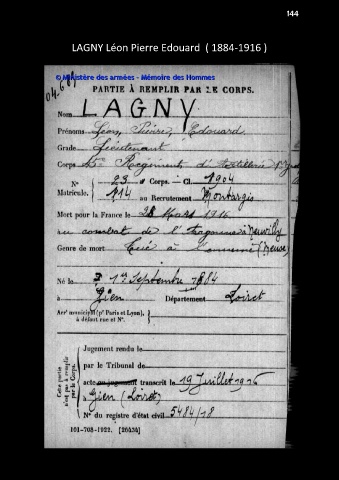 144
LAGNY Léon Pierre Edouard ( 1884-1916 )
© Ministère des armées - Mémoire des Hommes
PARTIE À REMPLIR PAR LE CORPS.
Nom LAGNY
Prénoms Léon, Pierre, Edouard
Grade Lieutenant
Corps 45e Régiment d'Artillerie
N° 23 au Corps. — Cl. 1904
Matricule. 114 au Recrutement Montargis
Mort pour la France le 28 Mars 1916
au combat de l'Argonne à Neuvilly
Genre de mort Tué à l'ennemi (Meuse)
Né le 1er Septembre 1884
à Gien Département Loiret
Arrt municipal (pr Paris et Lyon),
à défaut rue et N°.
Cette partie n'est pas à remplir par le Corps.
Jugement rendu le
par le Tribunal de
acte ou jugement transcrit le 19 Juillet 1916
à Gien (Loiret)
N° du registre d'état civil 5484/18
101-708-1922. [26434]